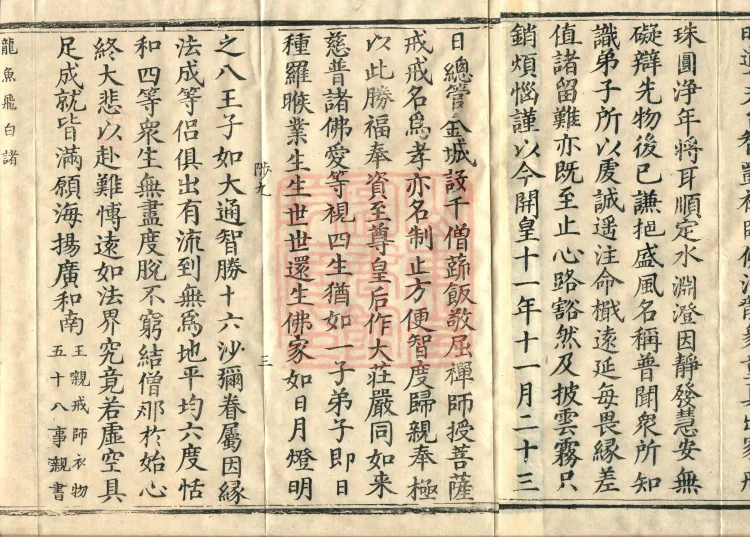 珠圓淨年將耳順定水淵澄因靜發慧安無
礙辯先物後已謙挹盛風名稱普聞衆所知
識弟子所以虔誠遥注命檝遠延每畏縁差
值諸留難亦既至止心路豁然及披雲霧只
銷煩惱謹以今開皇十一年十一月二十三
日總管金城設千僧蔬飯敬屈禪師授菩薩
戒戒名爲孝亦名制止方便智度歸親奉極
以此勝福奉資至尊皇后作大莊嚴同如来
慈普諸佛愛等視四生猶如一子弟子即日
種羅睺業生生世世還生佛家如日月燈明
陟九
三
之八王子如大通智勝十六沙彌眷屬因縁
法成等侣俱出有流到無爲地平均六度恬
和四等衆生無盡度脫不窮結僧那於始心
終大悲以赴難慱遠如法界究竟若虛空具
足成就皆滿願海揚廣和南
王親戒師衣物
五十八事親書
龍魚飛白諸